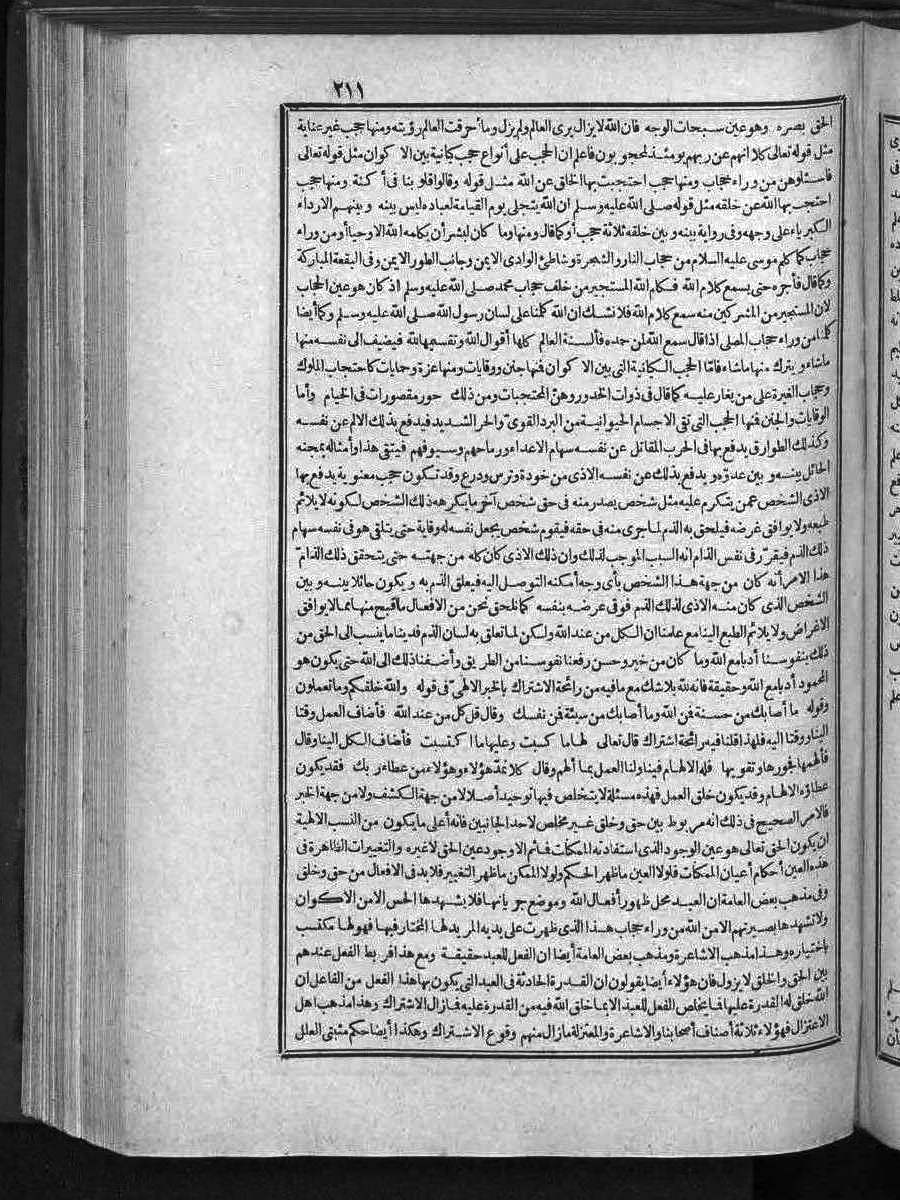 ٢١١
الحق بصره وهو عين سبحات الوجه فان الله لا يزال يرى العالم ولم يزل وما أحرقت العالم رؤيته ومنها حجب غير عناية
مثل قوله تعالى كلا انهم عن ربهم يومئذ لمحجوبون فاعلم ان الحجب على أنواع حجب كيانية بين الا كوان مثل قوله تعالى
فاسئلوهن من وراء حجاب ومنها حجب احتجبت بها الخلق عن الله مثل قوله وقالوا قلوبنا فى أكنة ومنها حجب
احتجب بها الله عن خلقه مثل قوله صلى الله عليه وسلم ان الله يتجلى يوم القيامة لعباده ليس بينه وبينهم الارداء
الكبرياء على وجهه وفى رواية بينه وبين خلقه ثلاثة حجب أوكما قال ومنها وما كان لبشر أن يكلمه الله الا وحيا أو من وراء
حجاب كما كلم موسى عليه السلام من حجاب النار والشجرة وشاطئ الوادى الايمن وجانب الطور الايمن وفى البقعة المباركة
وكما قال فأجره حتى يسمع كلام الله فكلم الله المستجير من خلف حجاب محمد صلى الله عليه وسلم اذ كان هو عين الحجاب
لان المستجير من المشركين منه سمع كلام الله فلا نشك ان الله كلمنا على لسان رسول الله صلى الله عليه وسلم وكما أيضا
كلمنا من وراء حجاب المصلى اذا قال سمع الله لمن حمده فألسنة العالم كلها أقوال الله وتقسيمها لله فيضيف الى نفسه منها
ماشاء ويترك منها ماشاء فأمّا الحجب الكيانية التى بين الا كوان فنها جنن ووقايات ومنها عزة وحمايات كاحتجاب الملوك
وحجاب الغيرة على من يغار عليه كما قال فى ذوات الخدور وهنّ المحتجبات ومن ذلك حور مقصورات فى الخيام وأما
الوقايات والجنن فنها الحجب التى تقى الاجسام الحيوانية من البرد القوىّ والحر الشديد فيدفع بذلك الالم عن نفسه
وكذلك الطوارق يدفع بها فى الحرب المقاتل عن نفسه سهام الاعداء ورماحهم وسيوفهم فيتقى هذا وأمثاله بمجنه
الحائل بينه وبين عدوّه ويدفع بذلك عن نفسه الاذى من خودة وترس ودرع وقد تكون حجب معنوية يدفع بها
الاذى الشخص عمن يتكرم عليه مثل شخص يصدر منه فى حق شخص آخر ما يكرهه ذلك الشخص لكونه لا يلائم
طبعه ولا يوافق غرضه فيلحق به الذم لما جرى منه فى حقه فيقوم شخص يجعل نفسه له وقاية حتى يتلقى هو فى نفسه سهام
ذلك الذم فيقرّر فى نفس الذام انه السبب الموجب لذلك وان ذلك الاذى كان كله من جهته حتى يتحقق ذلك الذامّ
هذا الامر أنه كان من جهة هذا الشخص بأى وجه أمكنه التوصل اليه فيعلق الذم به ويكون حائلا بينه وبين
الشخص الذى كان منه الاذى لذلك الذم فوقى عرضه بنفسه كما نلحق نحن من الافعال ما قبح منها مما لا يوافق
الاغراض ولا يلائم الطبع الينا مع علمنا ان الكل من عند الله ولكن لما تعلق به لسان الذم فدينا ما ينسب الى الحق من
ذلك بنفوسنا أدبا مع الله وما كان من خير وحسن رفعنا نفوسنا من الطريق وأضفنا ذلك الى الله حتى يكون هو
المحمود أدبا مع الله وحقيقة فانه لله بلا شك مع ما فيه من رائحة الاشتراك بالخبر الالهىّ فى قوله والله خلقكم وما تعملون
وقوله ما أصابك من حسنة فمن الله وما أصابك من سيئة فن نفسك وقال قل كل من عند الله فأضاف العمل وقتا
الينا ووقتا اليه فلهذا قلنا فيه رائحة اشتراك قال تعالى لها ما كسبت وعليها ما اكتسبت فأضاف الكل الينا وقال
فألهمها فجورها وتقويها فله الالهام فينا ولنا العمل بما ألهم وقال كلا نمدّ هؤلاء وهؤلاء من عطاء ربك فقد يكون
عطاؤه الالهام وقد يكون خلق العمل فهذه مسئلة لا يتخلص فيها توحيد أصلا لا من جهة الكشف ولا من جهة الخبر
فالامر الصحيح فى ذلك انه مربوط بين حق وخلق غير مخلص لاحد الجانبين فانه أعلى ما يكون من النسب الالهية
ان يكون الحق تعالى هو عين الوجود الذى استفادته الممكنات فما ثم الا وجود عين الحق لا غيره والتغييرات الظاهرة فى
هذه العين أحكام أعيان الممكنات فلولا العين ما ظهر الحكم ولولا الممكن ما ظهر التغيير فلا بد فى الافعال من حق وخلق
وفى مذهب بعض العامة ان العبد محل ظهور أفعال الله وموضع جريانها فلا يشهدها الحس الامن الاكوان
ولا تشهدها بصيرتهم الامن الله من وراء حجاب هذا الذى ظهرت على يديه المريد لها المختار فيها فهو لها مكتسب
باختياره وهذا مذهب الاشاعرة ومذهب بعض العامة أيضا ان الفعل للعبد حقيقة ومع هذا فربط الفعل عندهم
بين الحق والخلق لا يزول فان هؤلاء أيضا يقولون ان القدرة الحادثة فى العبد التى يكون بها هذا الفعل من الفاعل ان
الله خلق له القدرة عليها فما يخلص الفعل للعبد الا بما خلق الله فيه من القدرة عليه فمازال الاشتراك وهذا مذهب أهل
الاعتزال فهؤلاء ثلاثة أصناف أصحابنا والاشاعرة والمعتزلة مازال منهم وقوع الاشتراك وهكذا أيضا حكم مثبتى العلل